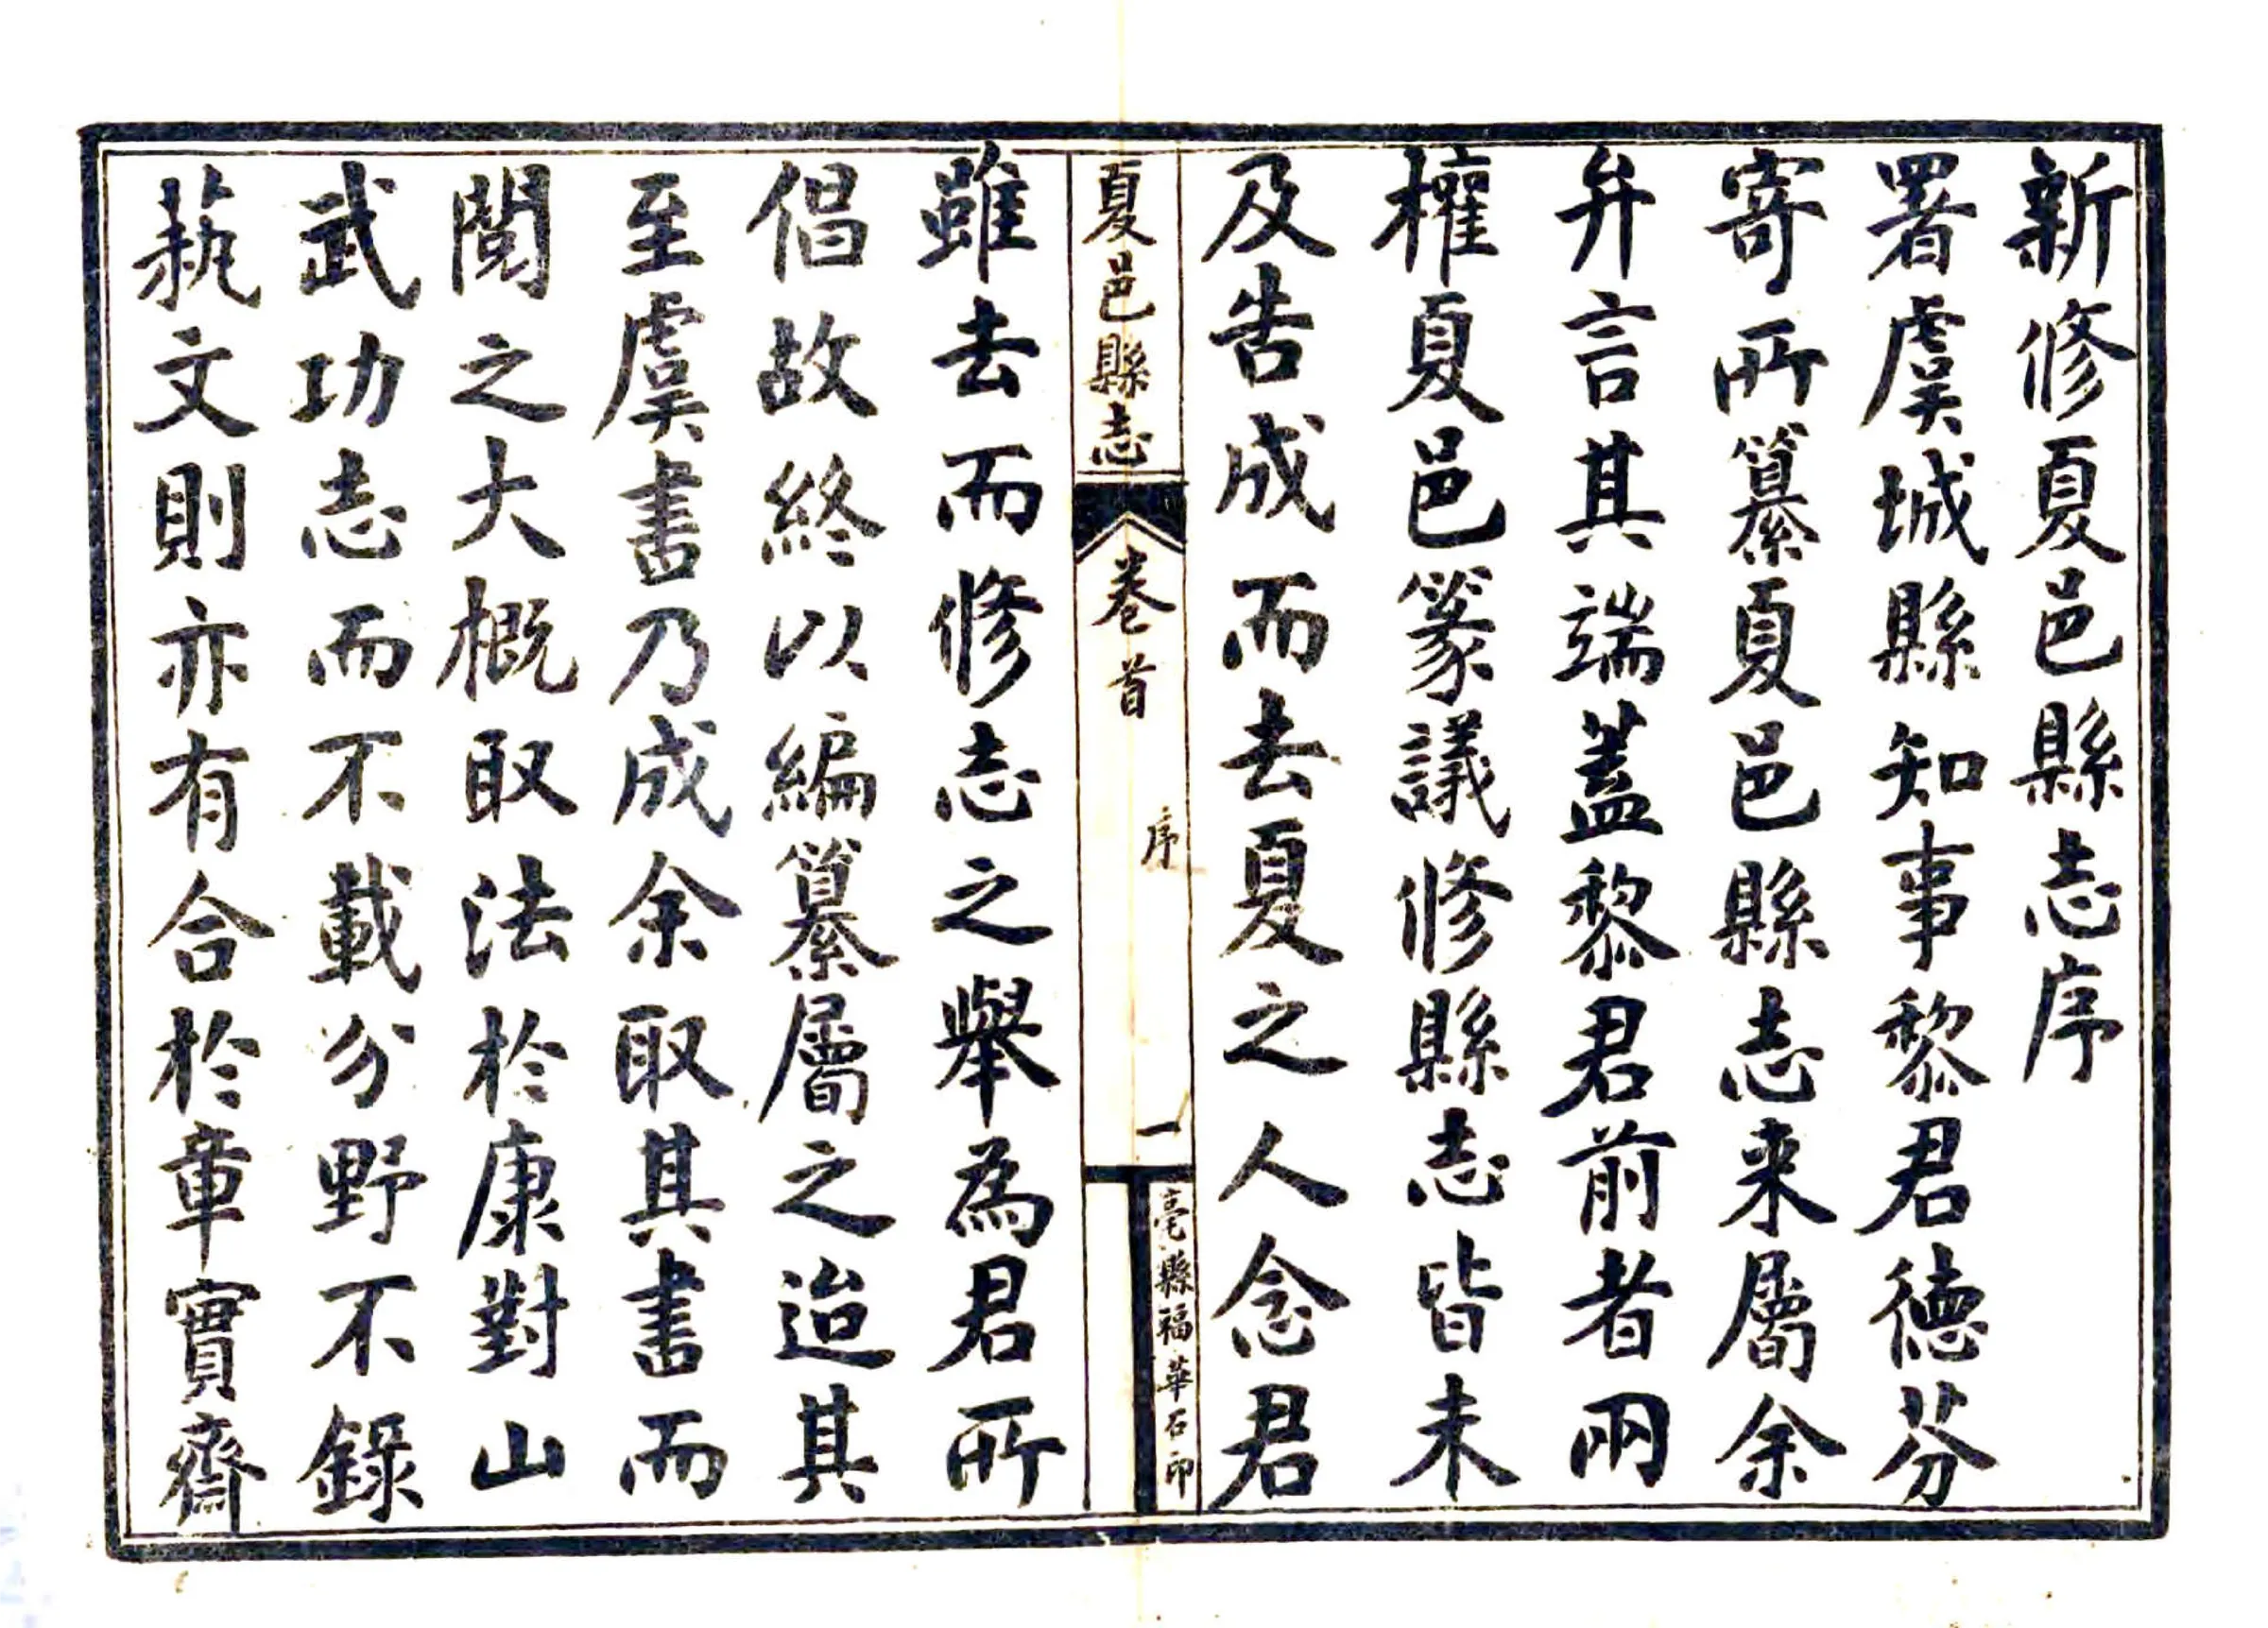 新修夏邑縣志序
署虞城縣知事黎君德芬
寄所纂夏邑縣志来屬余
弁言其端蓋黎君前者兩
權夏邑篆議修縣志皆未
及告成而去夏之人念君
夏邑縣志
卷首
序
一
亳縣福華石印
雖去而修志之舉為君所
倡故終以編纂屬之迨其
至虞書乃成余取其書而
閱之大概取法於康對山
武功志而不載分野不錄
蓺文則亦有合於章實齋